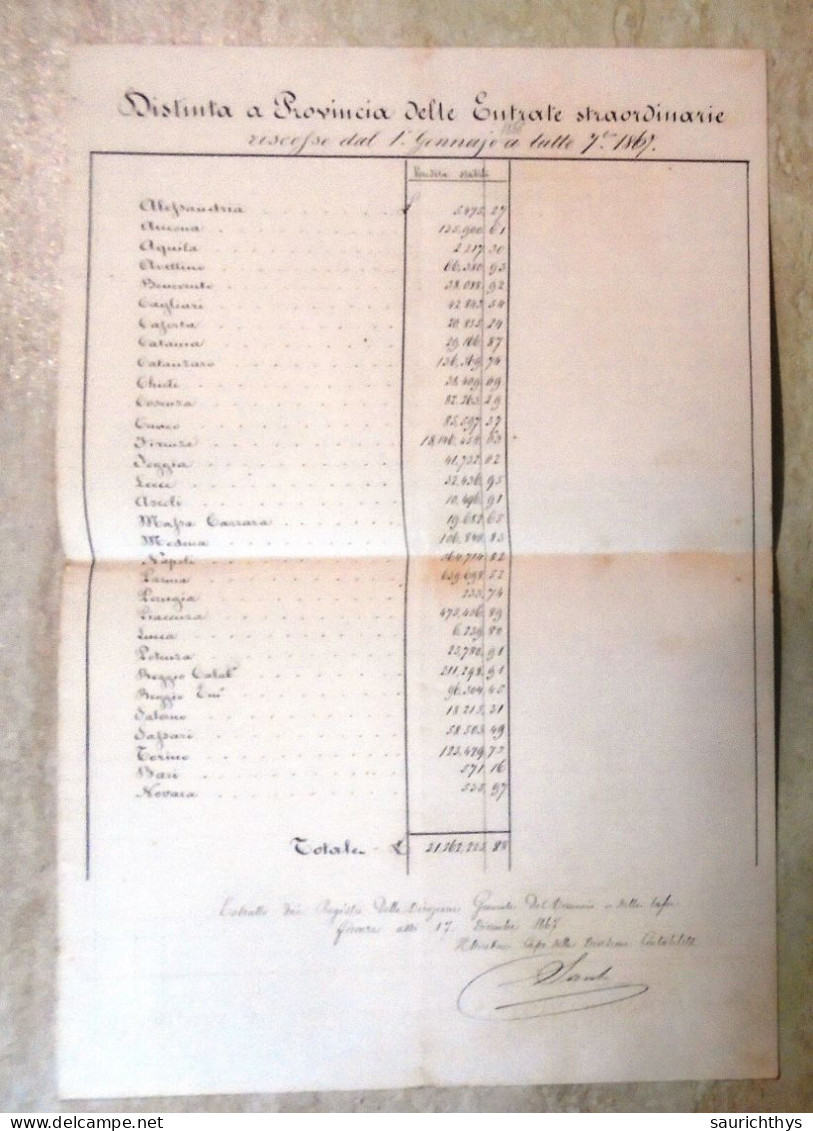 Distinta a Provincia delle Entrate straordinarie
riscosse dal 1° Gennajo a tutto 7bre 1867.
Vendita stabili
Alessandria £ 5,475, 27
Ancona 135,900, 61
Aquila 2 217, 30
Avellino 66,380, 93
Benevento 38,088, 92
Cagliari 42,843, 54
Caserta 20,855, 24
Catania 29,166, 87
Catanzaro 136,369, 74
Chieti 38,409, 09
Cosenza 82,263, 29
Cuneo 85,597, 37
Firenze 18,146,454, 63
Foggia 41,732, 02
Lecce 32,436, 95
Ascoli 10,496, 91
Massa Carrara 19,682, 65
Modena 106,848, 83
Napoli 564,714, 82
Parma 639,698, 52
Perugia 235, 74
Piacenza 473,456, 89
Lucca 6,239, 80
Potenza 23,780, 91
Reggio Calab. 211,298, 91
Reggio Em. 96,304, 45
Salerno 18,215, 31
Sassari 58,503, 49
Torino 123,479, 73
Bari 571, 16
Novara 535, 97
Totale £ 21,262,225, 88
Estratto dai Registri della Direzione Generale del Demanio e delle Tasse
Firenze alli 17 dicembre 1867
Il Direttore Capo della Divisione Contabilità
saurichthys